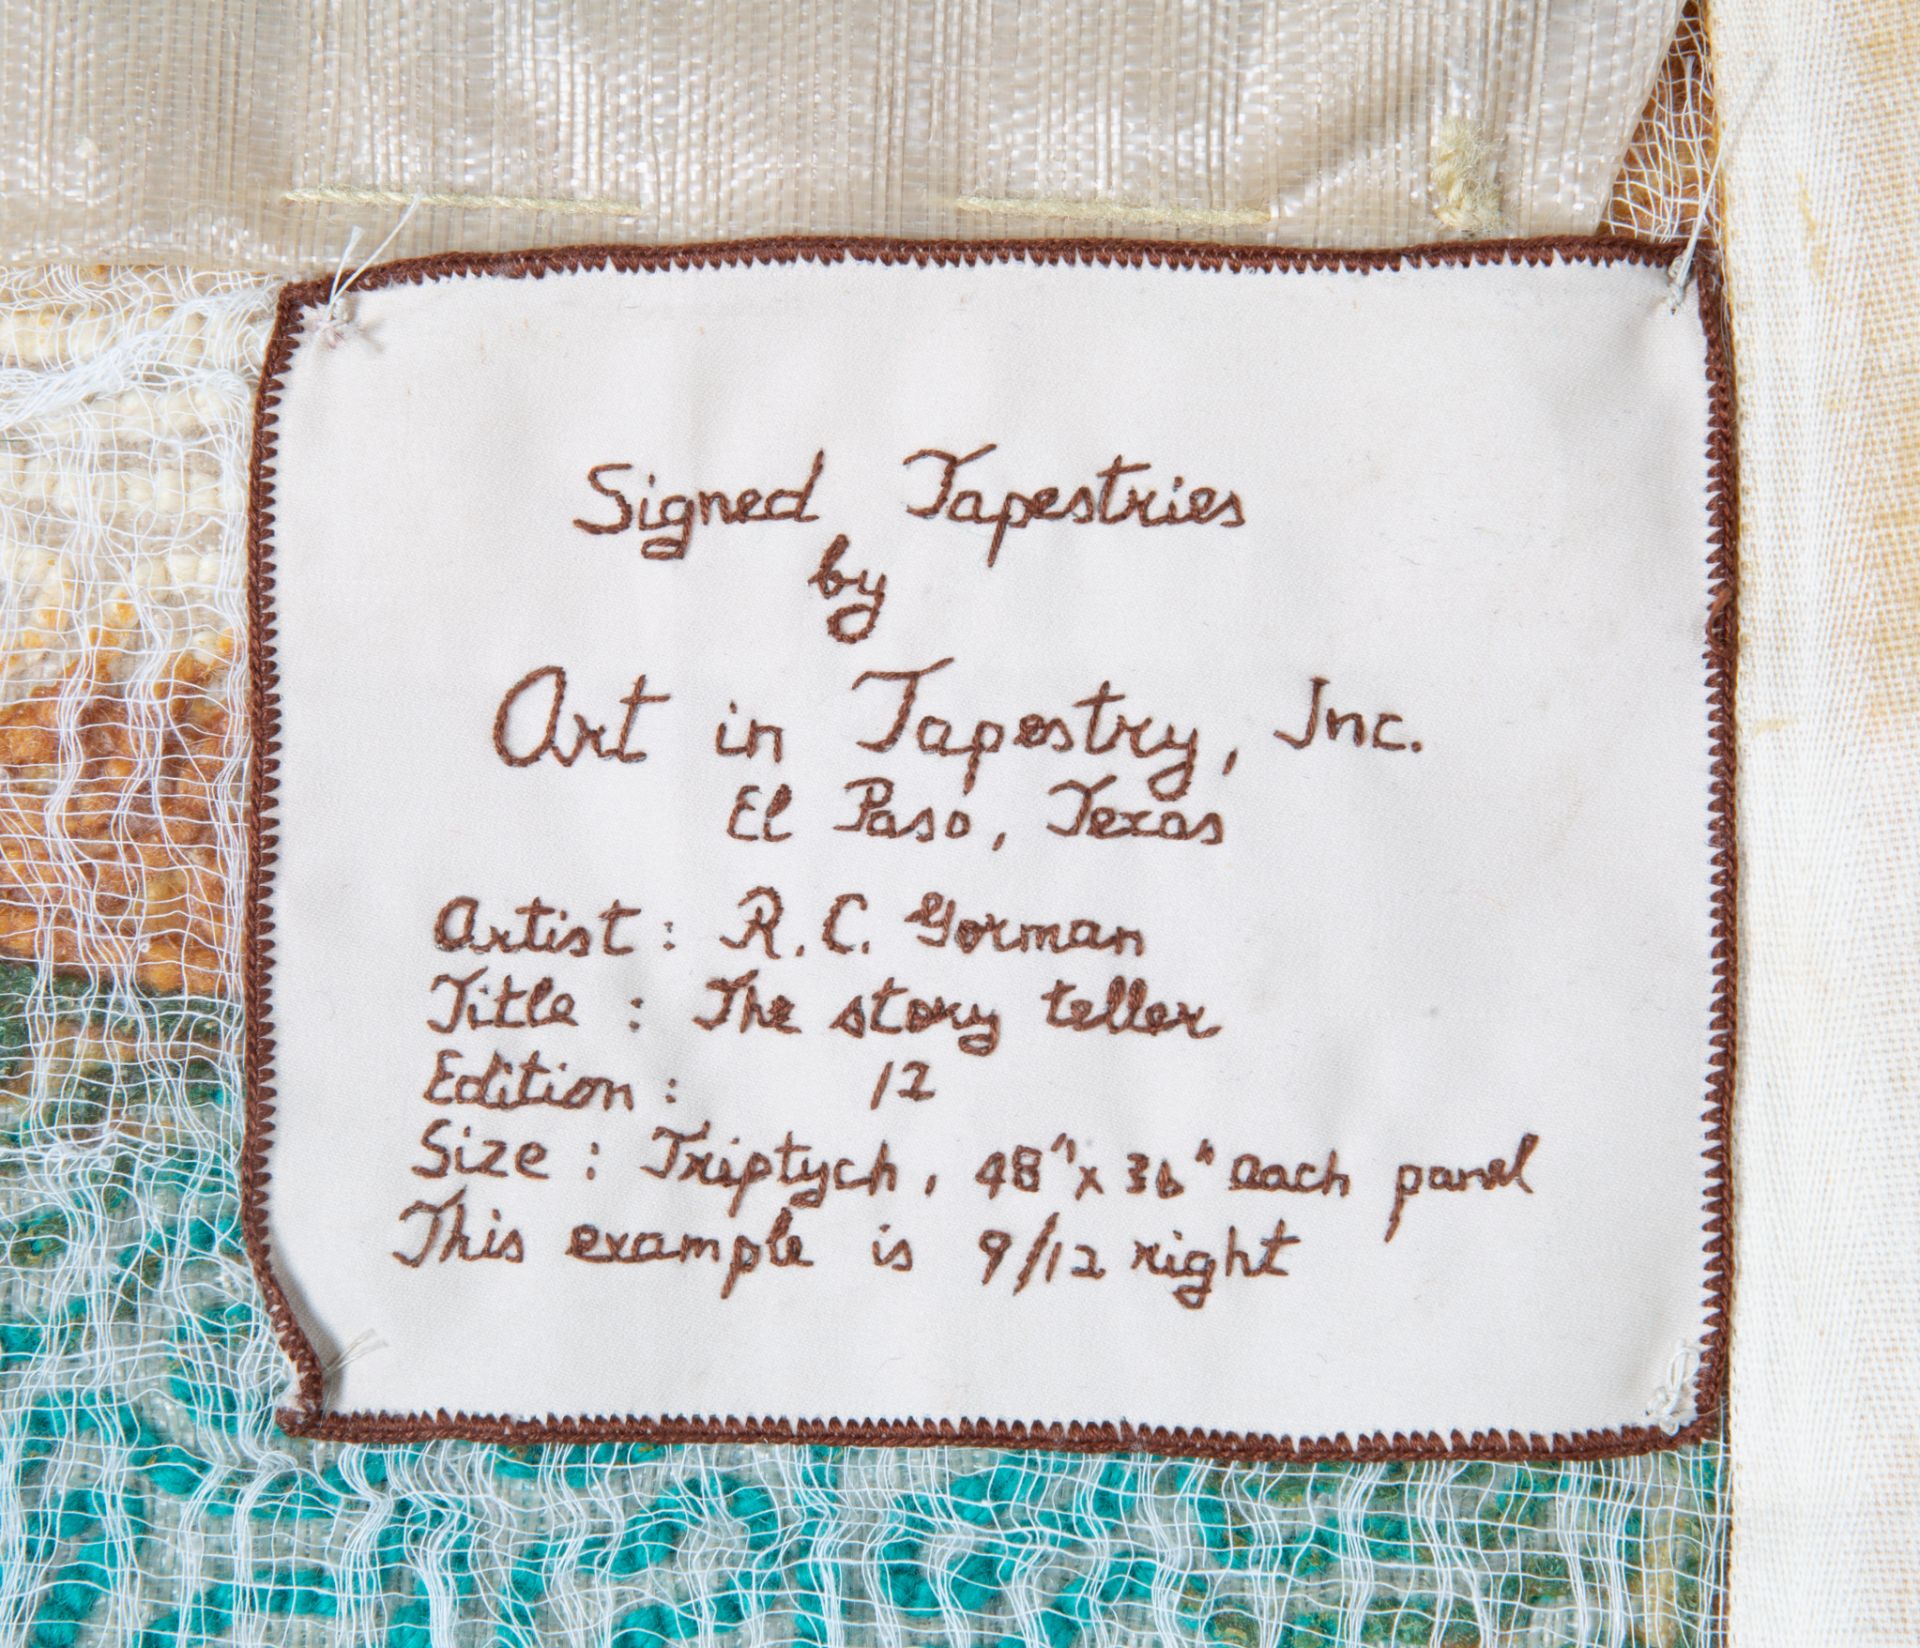 Signed Tapestries
by
Art in Tapestry, Inc.
El Paso, Texas
Artist: R.C. Gorman
Title: The story teller
Edition: 12
Size: Triptych, 48" x 36" each panel
This example is 9/12 right